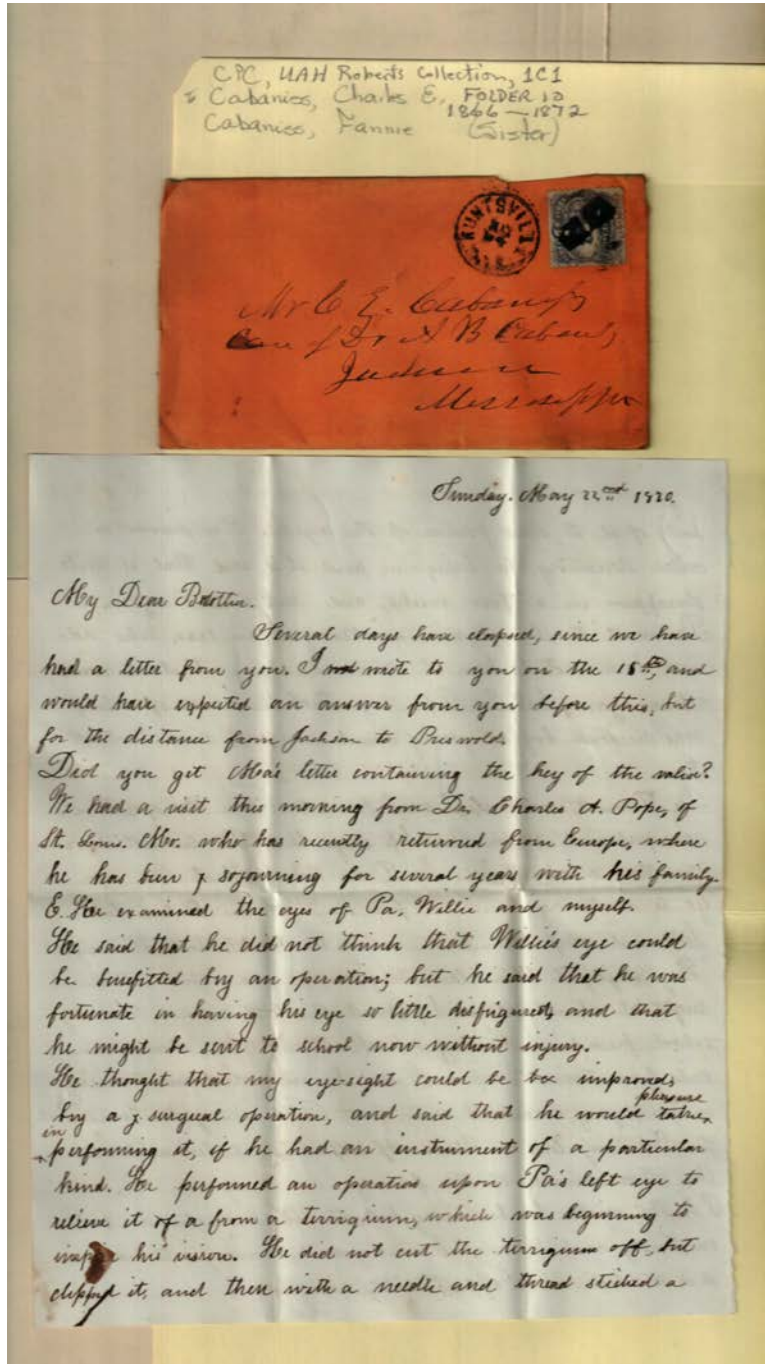 CPC, UAH Roberts Collection, 1C1
Cabaniss, Charles E. FOLDER 10
1866-1872
Cabaniss, Fannie (Sister)
HUNTSVILLE
Mr C E. Cabaniss
Care of Dr A B Cabaniss
Jackson
Mississippi
Sunday. May 22nd 1870.
My Dear Brother.
Several days have elapsed, since we have
had a letter from you. I wrote to you on the 15th, and
would have expected an answer from you before this, but
for the distance from Jackson to
Did you get Ma's letter containing the key of the valise?
We had a visit this morning from Dr. Charles A. Pope, of
St. Louis. Mo. who has recently returned from Europe, where
he has been sojourning for several years with his family.
E. He examined the eyes of Pa, Willie and myself.
He said that he did not think that Willie's eye could
be benefitted by an operation; but he said that he was
fortunate in having his eye so little disfigured, and that
he might be sent to school now without injury.
He thought that my eye-sight could be be improved,
by a surgical operation, and said that he would take pleasure
in performing it, if he had an instrument of a particular
kind. He performed an operation upon Pa's left eye to
relieve it of a from a terrigium, which was beginning to
his vision. He did not cut the terrigium off, but
clipped it, and then with a needle and thread stiched a